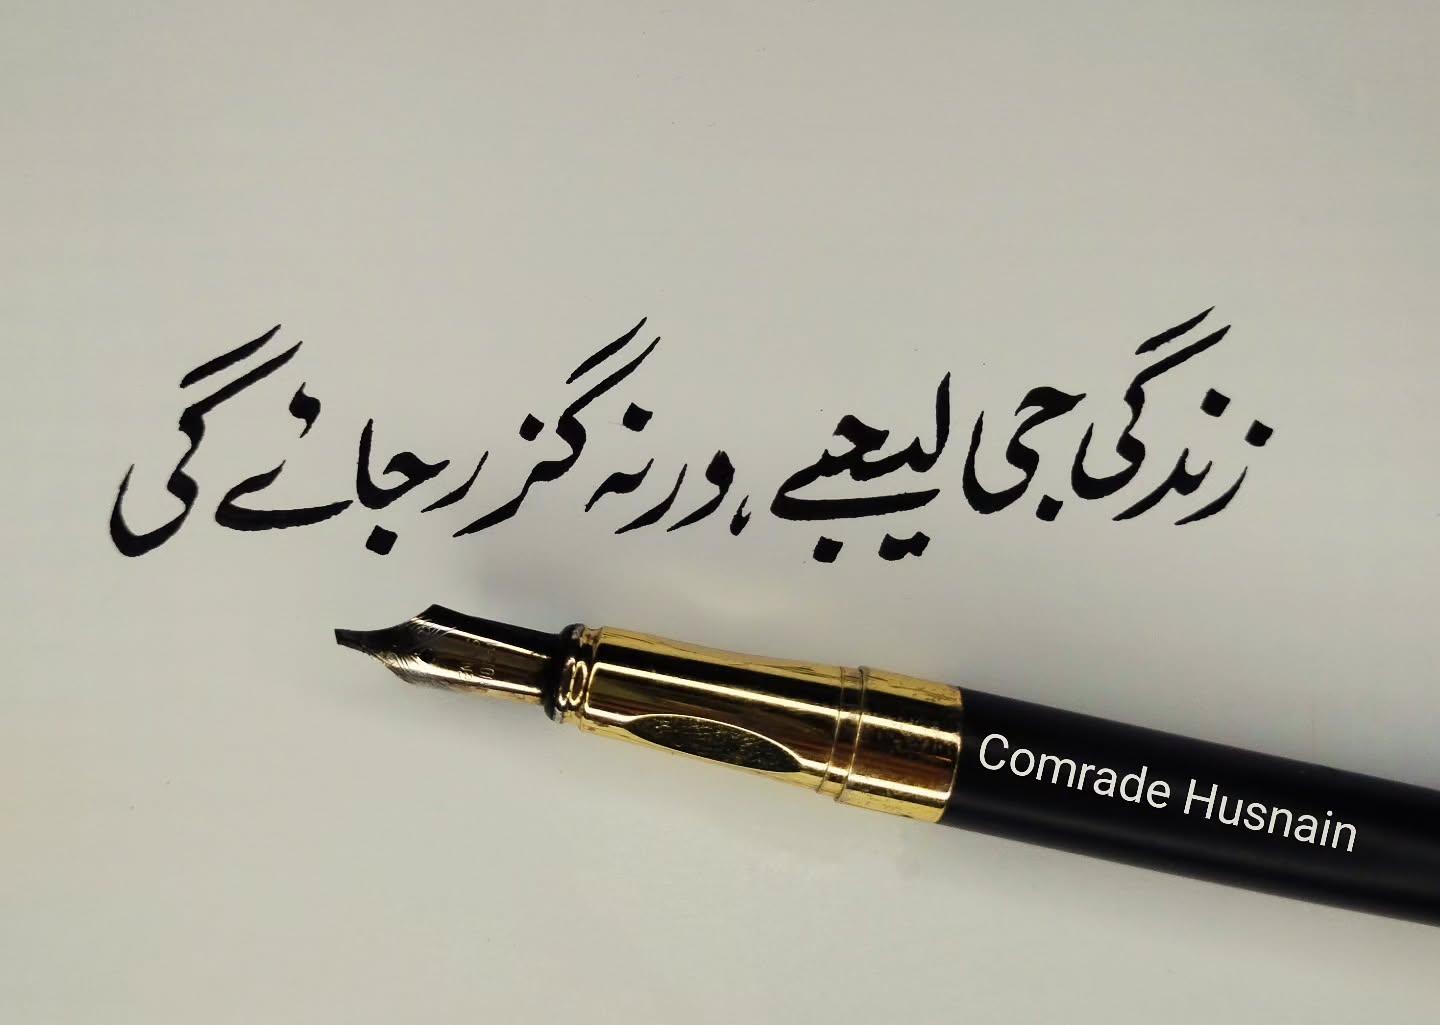 زندگی جی لیجیے، ورنہ گزر جائے گی
Comrade Husnain